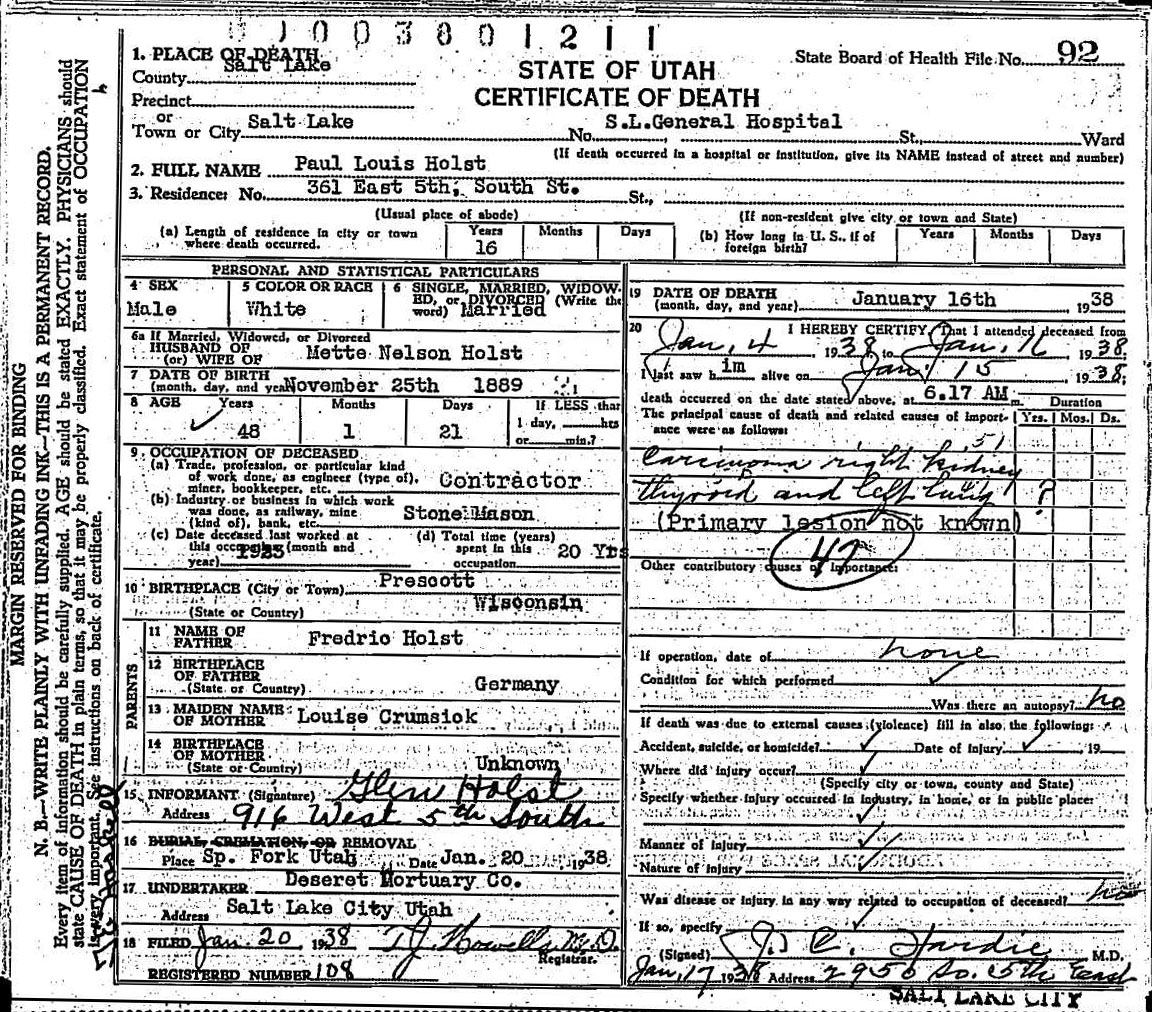 003801211
1. PLACE OF DEATH
State Board of Health File No. 92
County Salt Lake
STATE OF UTAH
Precinct
CERTIFICATE OF DEATH
or
Town or City Salt Lake No. S.L.General Hospital St., Ward
(If death occurred in a hospital or institution, give its NAME instead of street and number)
2. FULL NAME Paul Louis Holst
3. Residence: No. 361 East 5th, South St. St.,
(Usual place of abode) (If non-resident give city or town and State)
(a) Length of residence in city or town where death occurred. Years 16 Months Days
(b) How long in U. S., if of foreign birth? Years Months Days
PERSONAL AND STATISTICAL PARTICULARS
4 SEX Male
5 COLOR OR RACE White
6 SINGLE, MARRIED, WIDOWED, or DIVORCED (Write the word) Married
6a If Married, Widowed, or Divorced
HUSBAND OF
(or) WIFE OF Mette Nelson Holst
7 DATE OF BIRTH
(month, day, and year) November 25th 1889
8 AGE Years 48 Months 1 Days 21
If LESS than
1 day, hrs
or min.?
9. OCCUPATION OF DECEASED
(a) Trade, profession, or particular kind
of work done, as engineer (type of),
miner, bookkeeper, etc. Contractor
(b) Industry or business in which work
was done, as railway, mine
(kind of), bank, etc. Stone Mason
(c) Date deceased last worked at
this occupation (month and
year)
(d) Total time (years)
spent in this
occupation 20 Yrs
10 BIRTHPLACE (City or Town) Prescott
(State or Country) Wisconsin
PARENTS
11 NAME OF FATHER Fredric Holst
12 BIRTHPLACE OF FATHER
(State or Country) Germany
13 MAIDEN NAME OF MOTHER Louise Crumsiok
14 BIRTHPLACE OF MOTHER
(State or Country) Unknown
15 INFORMANT (Signature) Glen Holst
Address 916 West 5th South
16 BURIAL, CREMATION, OR REMOVAL
Place Sp. Fork Utah Date Jan. 20 1938
17 UNDERTAKER Deseret Mortuary Co.
Address Salt Lake City Utah
18 FILED Jan. 20 1938 T.J. Howells M.D.
Registrar.
REGISTERED NUMBER 108
19 DATE OF DEATH
(month, day, and year) January 16th 1938
20 I HEREBY CERTIFY, That I attended deceased from
Jan. 4 1938 to Jan. 16 1938;
I last saw him alive on Jan. 15 1938;
death occurred on the date stated above, at 6.17 AM m.
Duration
The principal cause of death and related causes of importance were as follows: Yrs. Mos. Ds.
51
carcinoma right kidney
thyroid and left lung ?
(Primary lesion not known)
47
Other contributory causes of importance:
If operation, date of none
Condition for which performed
Was there an autopsy? no
If death was due to external causes (violence) fill in also the following:
Accident, suicide, or homicide? Date of injury 19
Where did injury occur?
(Specify city or town, county and State)
Specify whether injury occurred in industry, in home, or in public place:
Manner of injury
Nature of injury
Was disease or injury in any way related to occupation of deceased? no
If so, specify
(Signed) Hardie M.D.
Jan. 17 1938 Address 2955 So. 5th East
SALT LAKE CITY
MARGIN RESERVED FOR BINDING
N. B.—WRITE PLAINLY WITH UNFADING INK—THIS IS A PERMANENT RECORD.
Every item of information should be carefully supplied. AGE should be stated EXACTLY. PHYSICIANS should
state CAUSE OF DEATH in plain terms, so that it may be properly classified. Exact statement of OCCUPATION
is very important. See instructions on back of certificate.